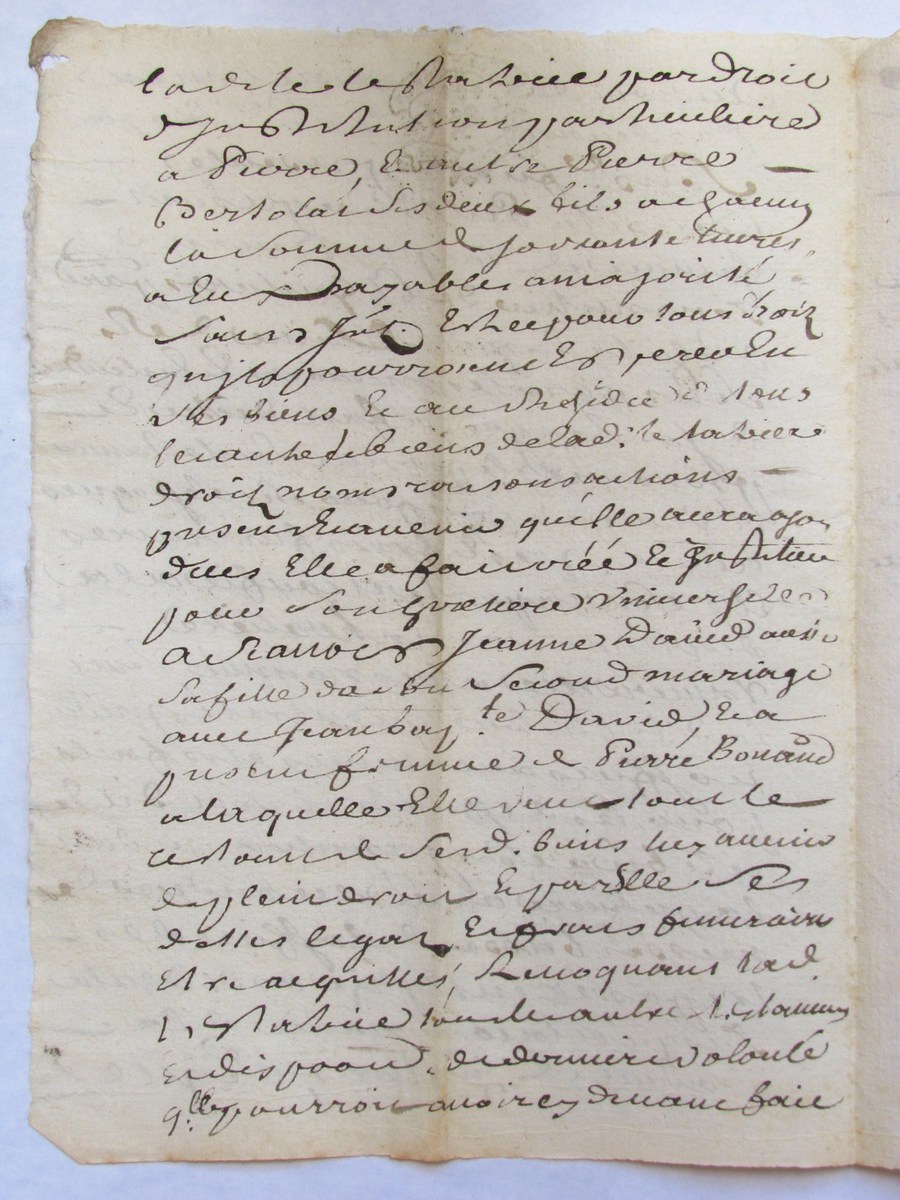 ladite testatrice par droit
d'Institution particuliere
a Pierre, Et autre Pierre
Bertolas ses deux fils a chacun
la somme de soixante livres
a Eux payables a majorité
sans Jnt. Et ce pour tous droitz
qu'jls pourroient Esperer En
ses biens Et au Residu de tous
les autres biens de lad. testatrice
droitz noms raisons actions
presents Et avenir qu'elle aura apres
dans Elle a fait créé Et Institue
pour son heretiere Universelle
a scavoir Jeanne David aussi
sa fille de son second mariage
avec Jean bap.te David, Et a
present femme de Pierre Bonaud
a laquelle Elle veut tout le
restant de sesd. biens luy avenir
de plein droit Et par Elle ses
dettes legat, Et frais funeraires
Etre acquittés, Revoquant lad.
testatrice tous les autres testamens
Et dispoon. de derniere volonté
q.lle pourroit avoir cy devant fait